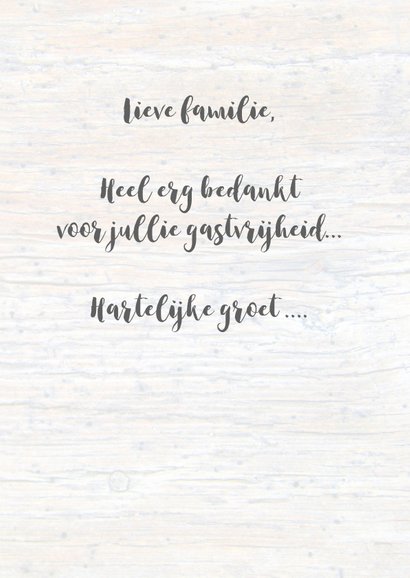 Lieve familie,
Heel erg bedankt
voor jullie gastvrijheid...
Hartelijke groet ....